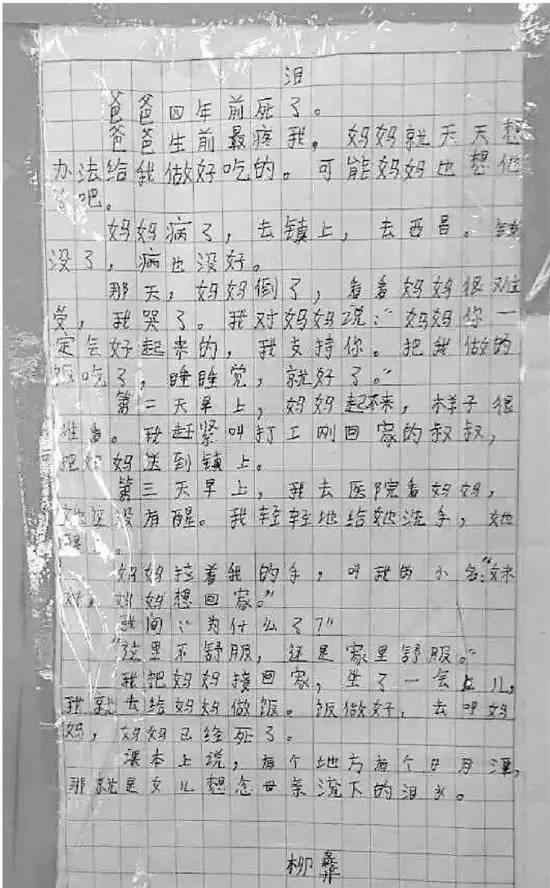 泪
爸爸四年前死了。
爸爸生前最疼我。妈妈就天天想
办法给我做好吃的。可能妈妈也想他
了吧。
妈妈病了，去镇上，去西昌。钱
没了，病也没好。
那天，妈妈倒了，看着妈妈很难
受，我哭了。我对妈妈说：“妈妈你一
定会好起来的，我支持你。把我做的
饭吃了，睡睡觉，就好了。”
第二天早上，妈妈起不来，样子很
难看。我赶紧叫打工刚回家的叔叔，
把妈妈送到镇上。
第三天早上，我去医院看妈妈，
她还没有醒。我轻轻地给她洗手，她
醒了。
妈妈拉着我的手，叫我的小名：“妹
妹，妈妈想回家。”
我问：“为什么了？”
“这里不舒服，还是家里舒服。”
我把妈妈接回家，坐了一会儿，
我就去给妈妈做饭。饭做好，去叫妈
妈，妈妈已经死了。
课本上说，有个地方有个日月潭，
那就是女儿想念母亲流下的泪水。
柳彝